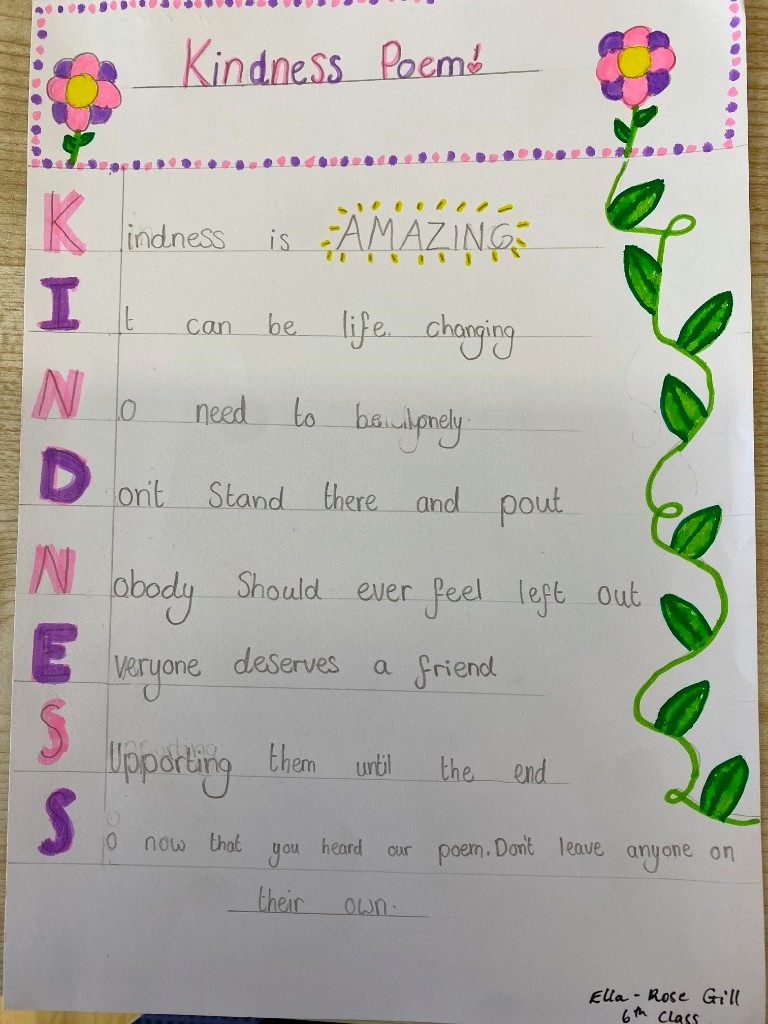 Kindness Poem!
Kindness is AMAZING
It can be life changing
No need to be lonely
Don't Stand there and pout
Nobody Should ever feel left out
Everyone deserves a friend
Supporting them until the end
So now that you heard our poem. Don't leave anyone on
their own.
Ella-Rose Gill
6th Class